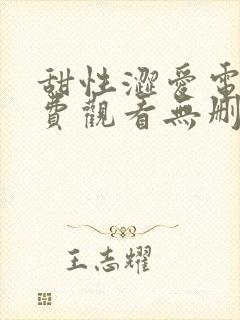 甜性澀愛電
費觀看無刪
王志耀